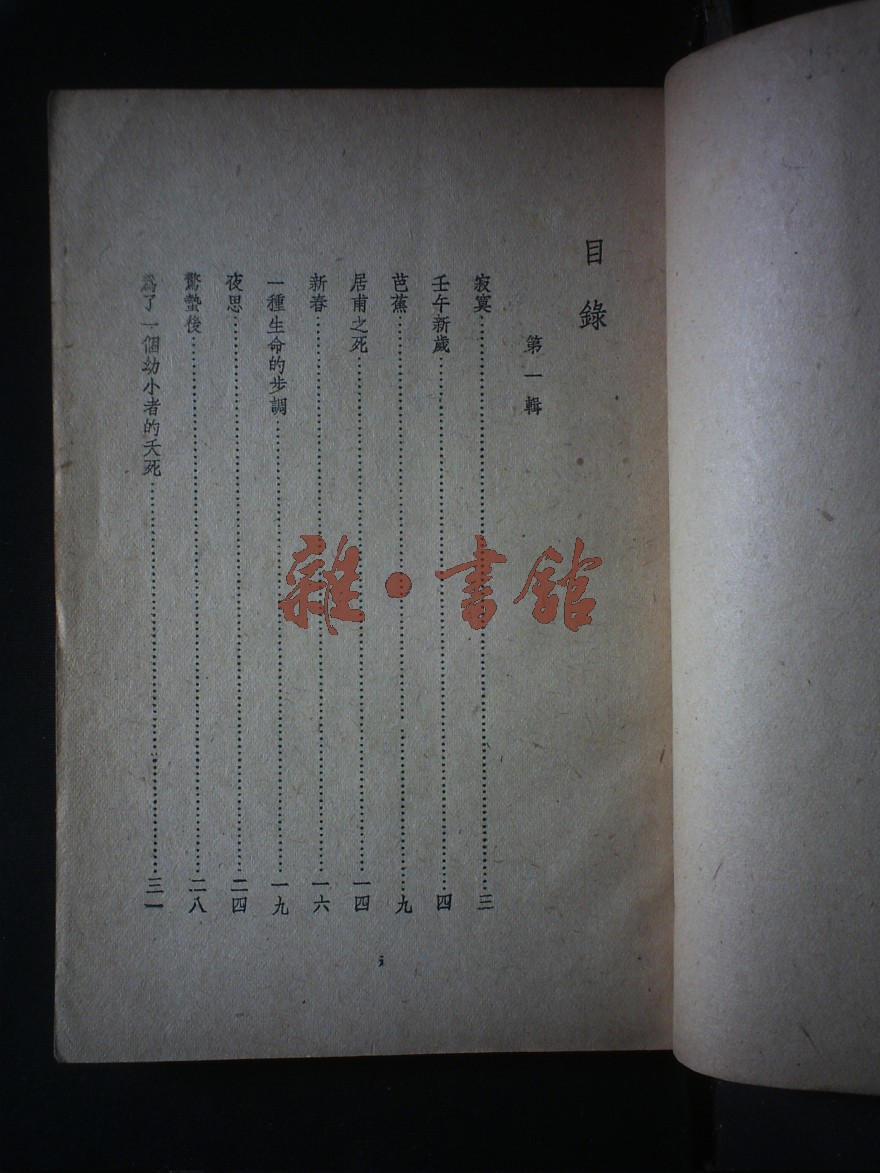 目錄
第一輯
寂寞……三
壬午新歲……四
芭蕉……九
居甫之死……一四
新春……一六
一種生命的步調……一九
夜思……二四
驚蟄後……二八
爲了一個幼小者的夭死……三一
雜·書館